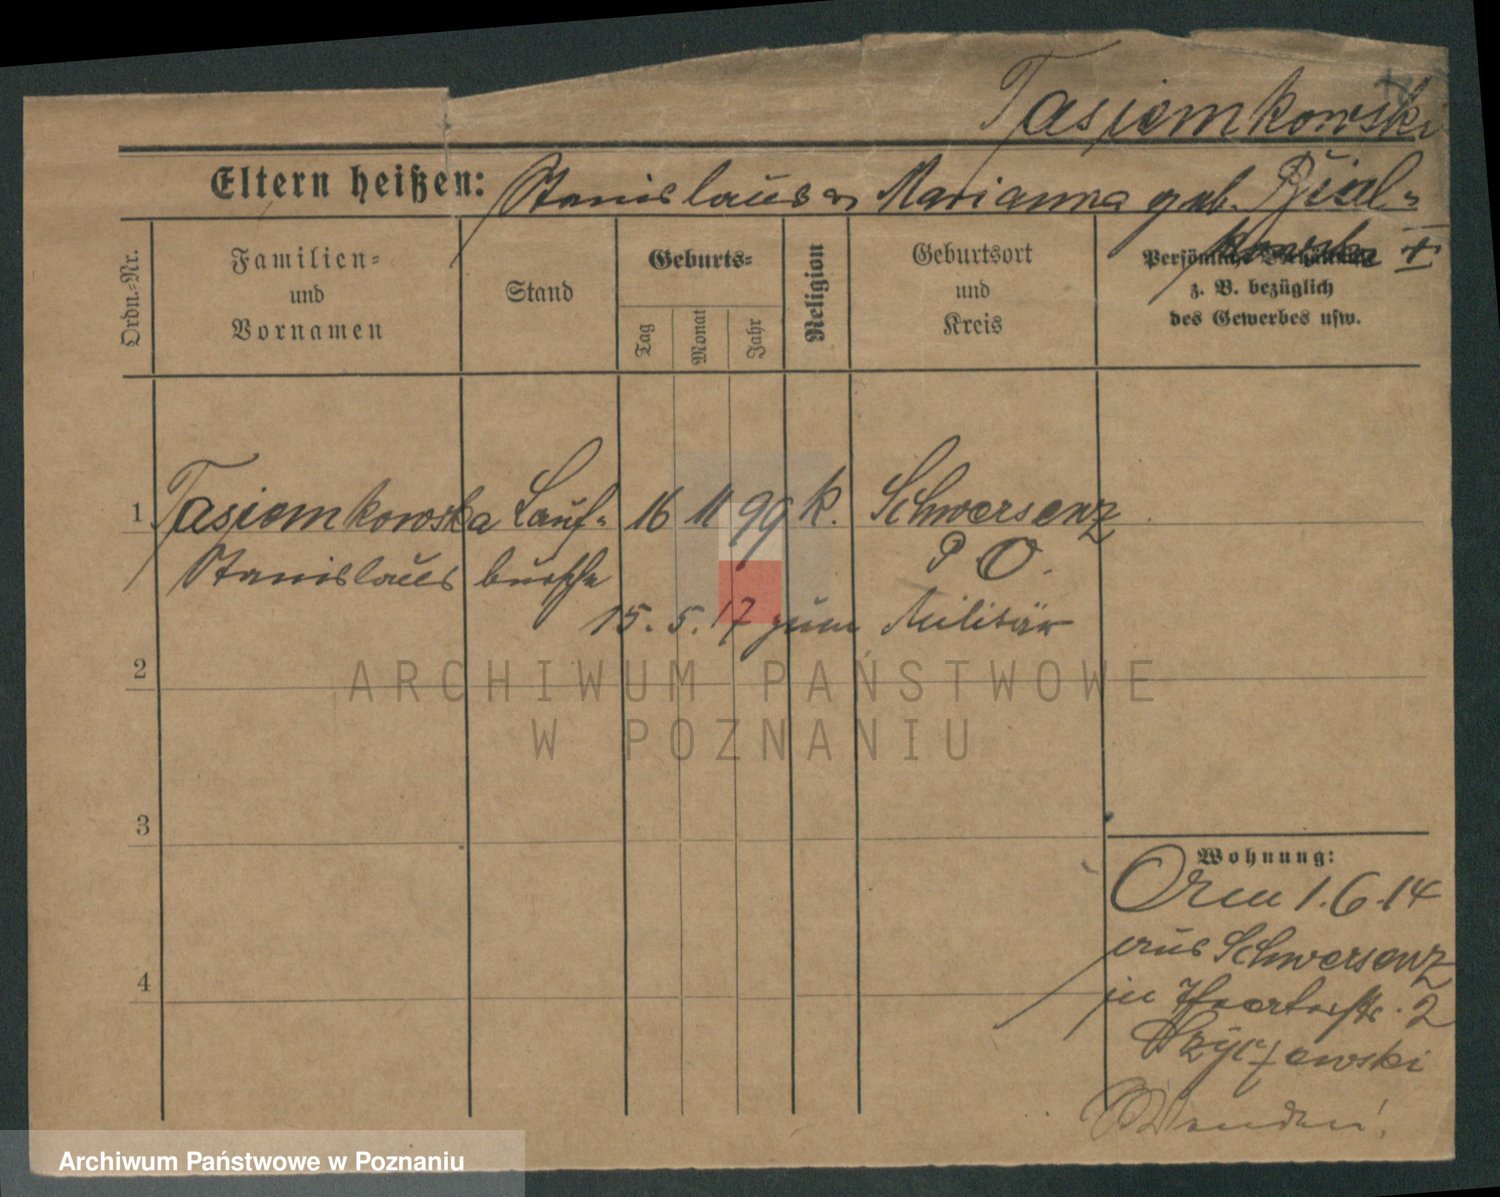 Tasiemkowski
Eltern heißen: Stanislaus u. Marianna geb. Bial-
kowska †
Ordn.-Nr.
Familien-
und
Vornamen
Stand
Geburts-
Tag
Monat
Jahr
Religion
Geburtsort
und
Kreis
Persönliche Verhältnisse
z. B. bezüglich
des Gewerbes usw.
1 Tasiemkowska Lauf- 16 11 99 k. Schwersenz
Stanislaus bursche P O.
15. 5. 17 zum Militär
2
3
4
Wohnung:
1.6.14
aus Schwersenz
in 2
ARCHIWUM PAŃSTWOWE
W POZNANIU
Archiwum Państwowe w Poznaniu